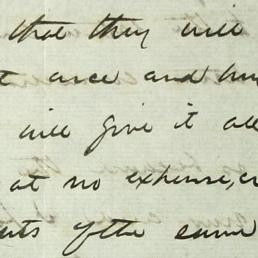 that they will
at once and
will give it
at no expense,
of the same